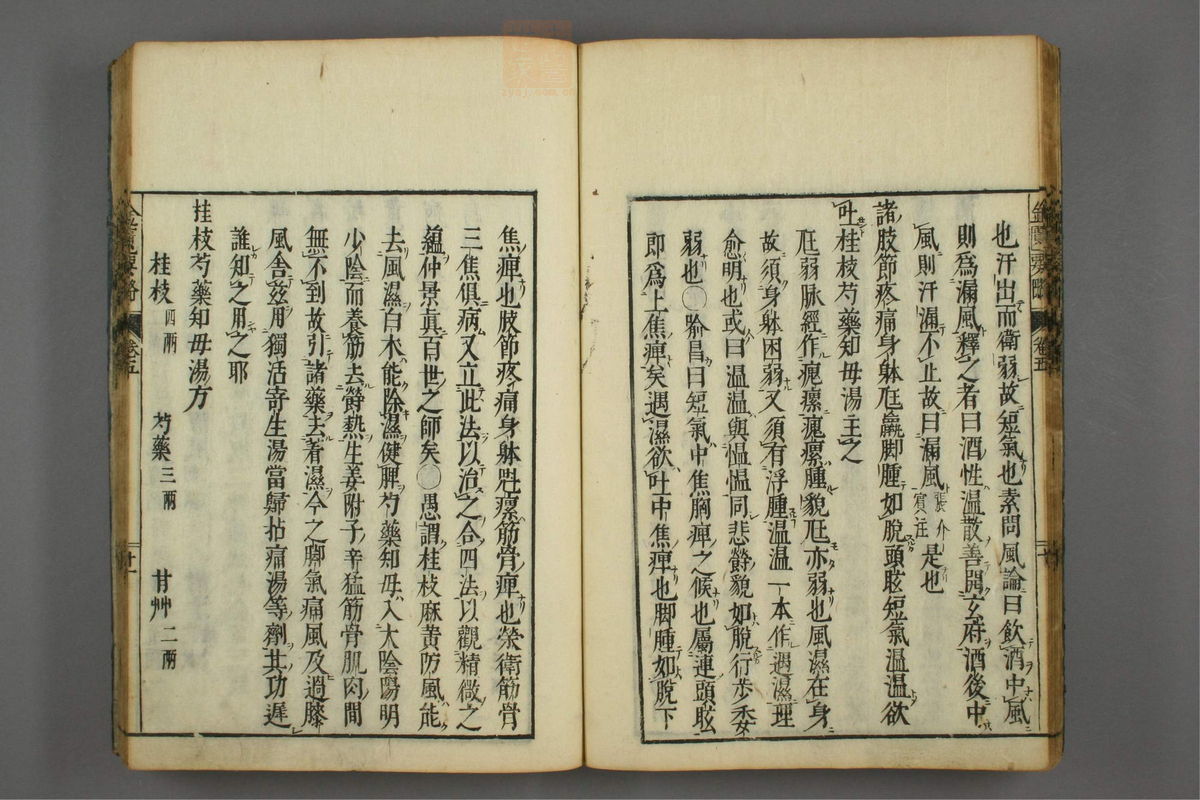 也汗出而衛弱故短氣也素問風論曰飲酒中風
則爲漏風釋之者曰酒性温散善開玄府酒後中
風則汗漏不止故曰漏風張介賓註是也
諸肢節疼痛身躰尫羸脚腫如脫頭眩短氣温温欲
吐桂枝芍藥知母湯主之
尫弱脉經作瘣瘰瘣瘰腫貌尫亦弱也風濕在身
故須身躰困弱又須有浮腫温温一本作遇濕理
愈明也或曰温温與愠愠同悲欝貌如脫行步
弱也○喻昌曰短氣中焦胸痺之候也屬連頭眩
即爲上焦痺矣遇濕欲吐中焦痺也脚腫如脫下
金匱要畧 卷五 廿
焦痺也肢節疼痛身躰瘰筋骨痺也榮衛筋骨
三焦俱病又立此法以治之合四法以觀精微之
蘊仲景眞百世之師矣○愚謂桂枝麻黄防風能
去風濕白朮能除濕健脾芍藥知母入太陰陽明
少陰而養筋去欝熱生姜附子辛猛筋骨肌肉間
無不到故引諸藥去著濕今之脚氣痛風及過膝
風舍玆用獨活寄生湯當歸拈痛湯等劑其功遲
誰知之用之耶
桂枝芍藥知母湯方
桂枝四兩 芍藥三兩 甘艸二兩
金匱要畧 卷五 廿一